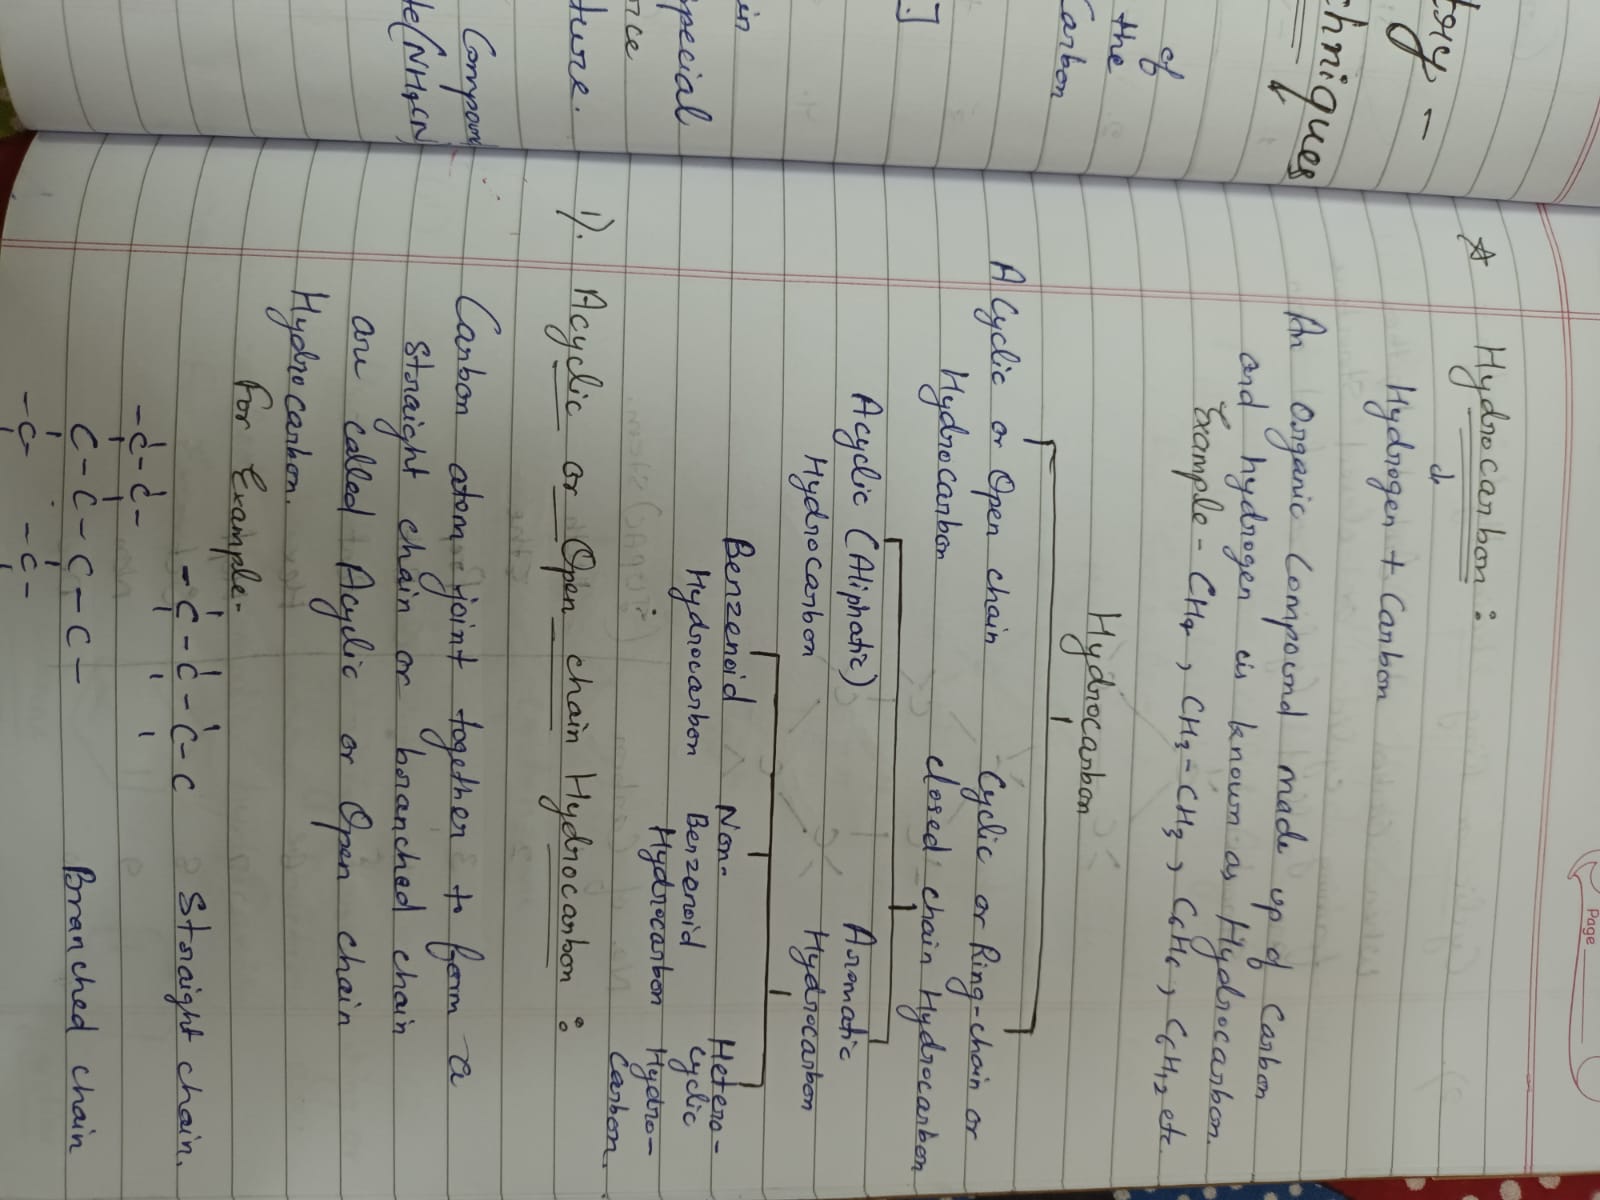 try -
chniques
of
the
Carbon
.]
in
pecial
nce
ture.
Compoun
te(NH4CN)
Page
☆ Hydrocarbon :
Hydrogen + Carbon
An Organic Compound made up of Carbon
and hydrogen is known as Hydrocarbon.
Example - CH4, CH3=CH3, C6H6, C6H12 etc.
Hydrocarbon
A Cyclic or Open chain
Hydrocarbon
Cyclic or Ring-chain or
closed chain Hydrocarbon
Acyclic (Aliphatic)
Hydrocarbon
Aromatic
Hydrocarbon
Benzenoid
Hydrocarbon
Non-
Benzenoid
Hydrocarbon
Hetero-
cyclic
Hydro-
Carbon.
1). Acyclic or Open chain Hydrocarbon :
Carbon atom joint together to form a
straight chain or branched chain
are called Acyclic or Open chain
Hydrocarbon.
For Example-
-C-C-C-C Straight chain.
-C-C-
C-C-C-C- Branched chain
-C- -C-